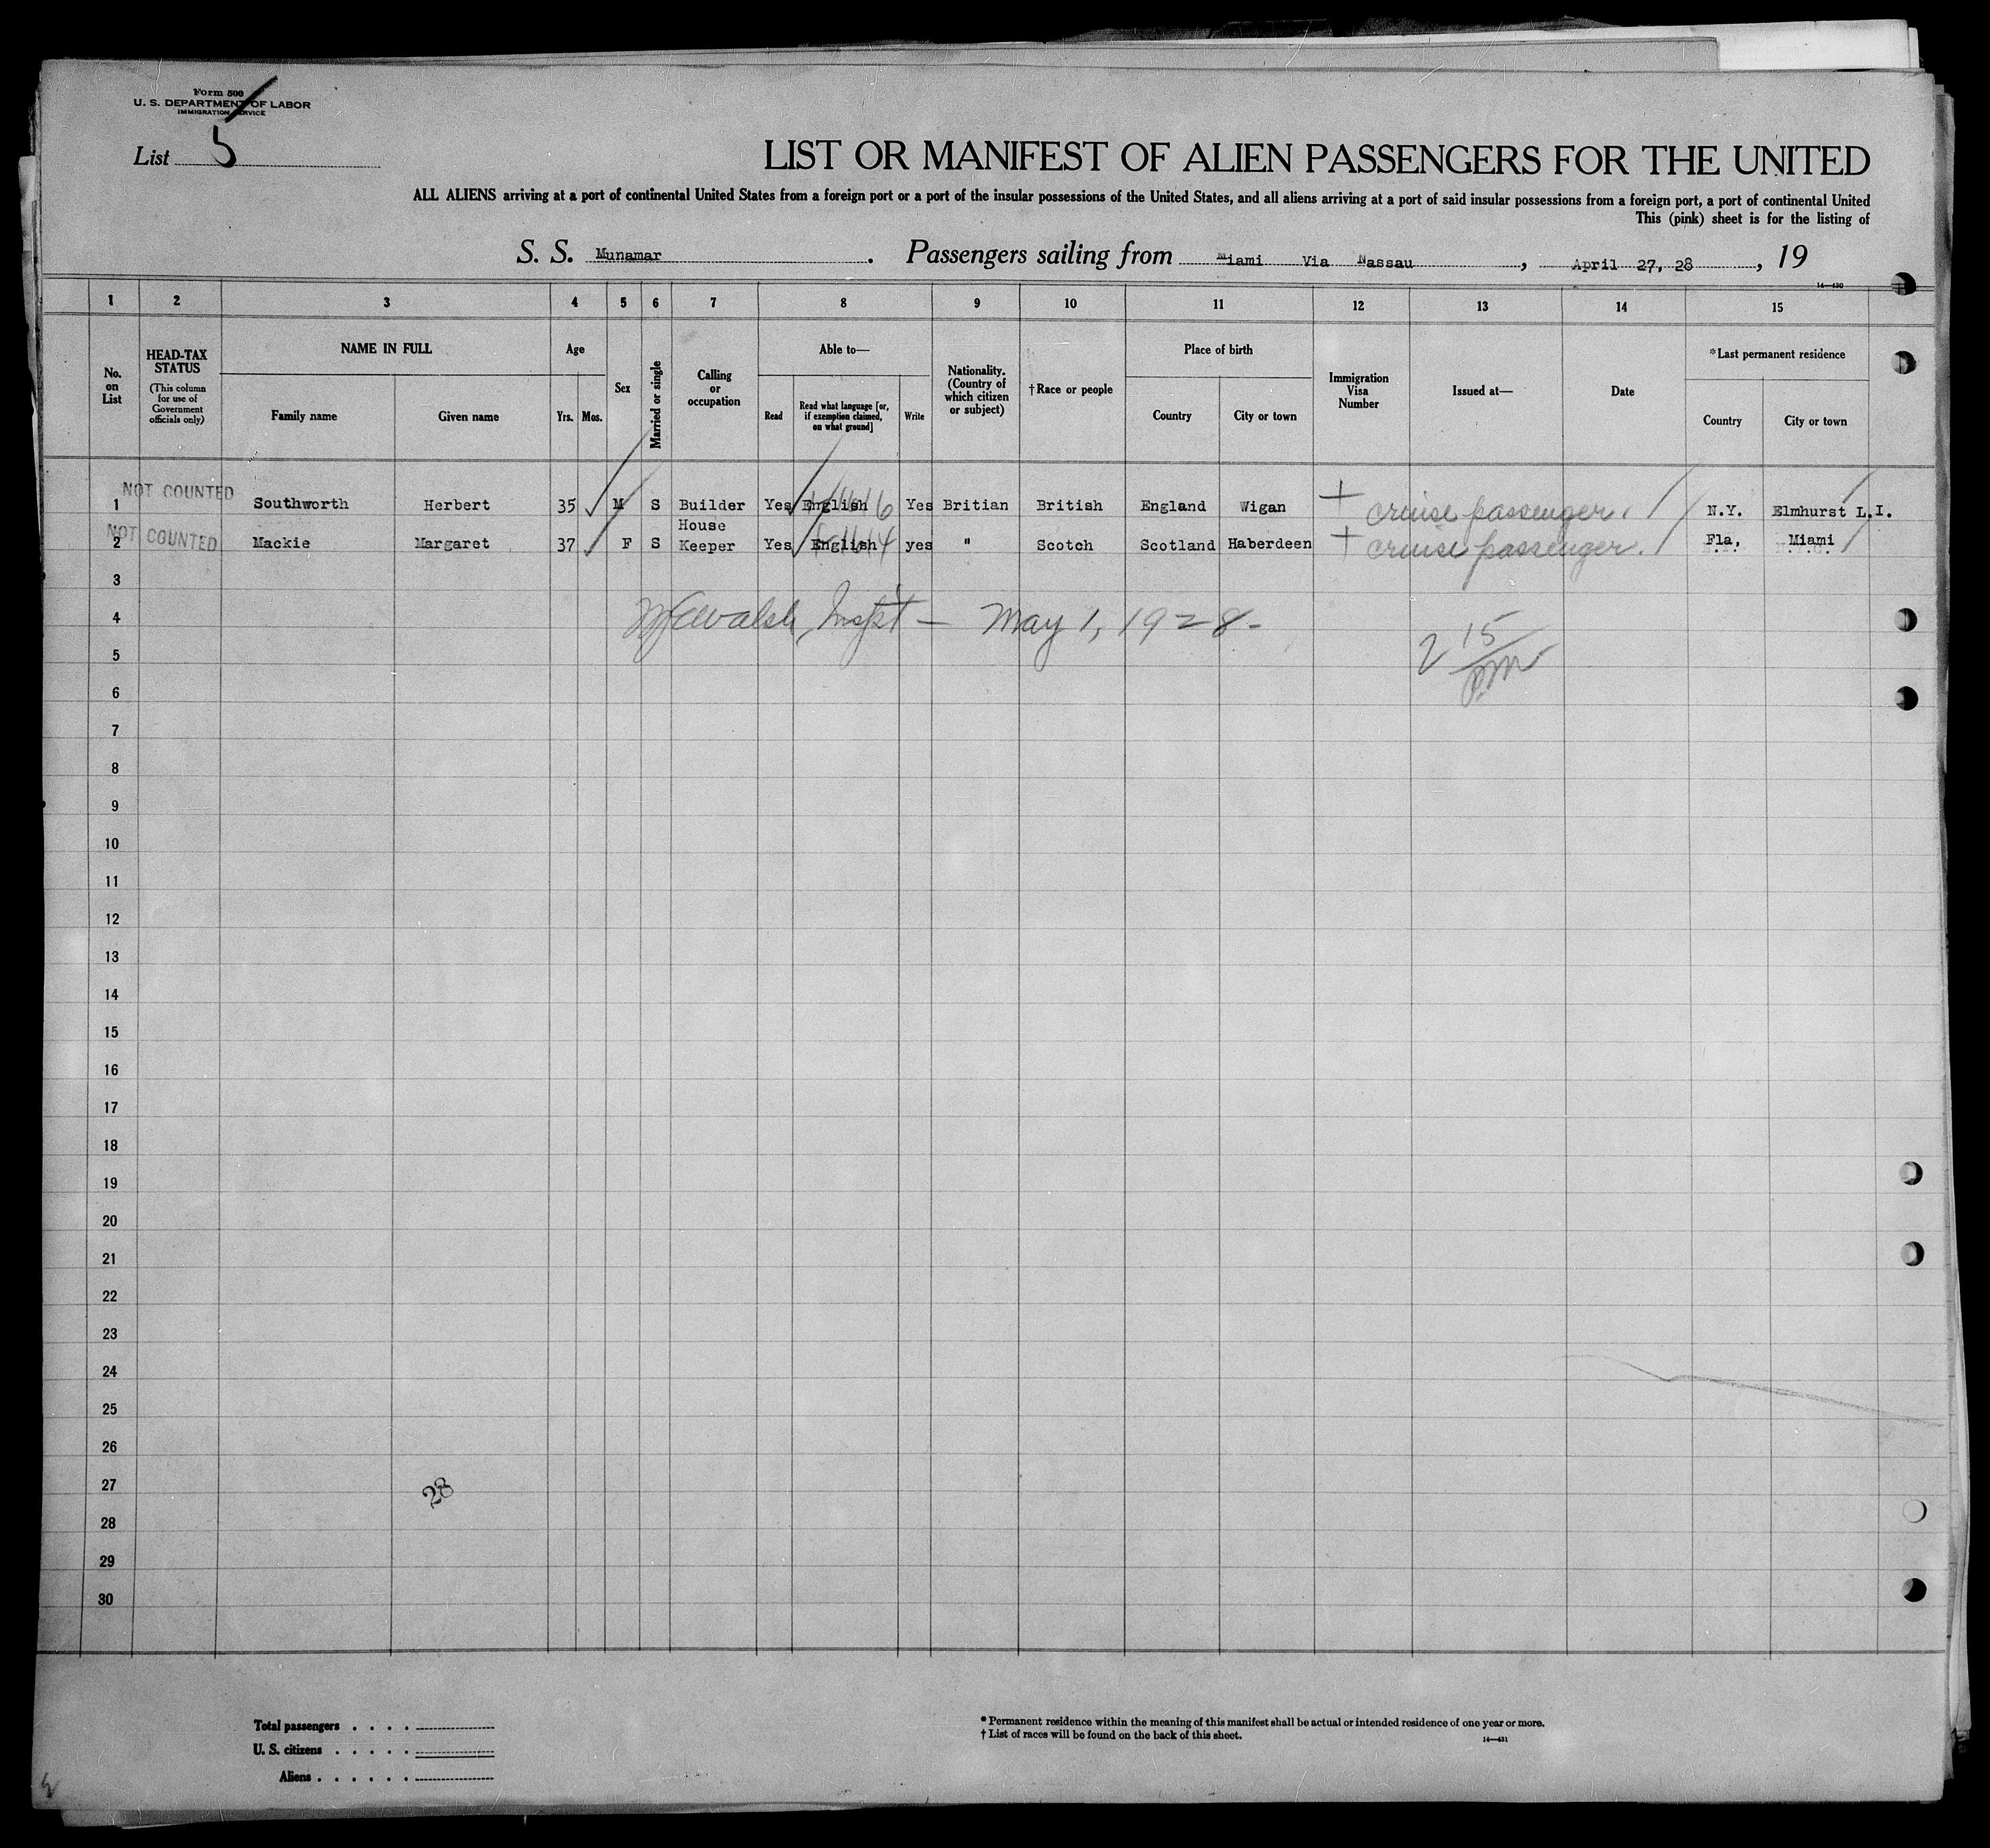 Form 500
U. S. DEPARTMENT OF LABOR
IMMIGRATION SERVICE
List 5
LIST OR MANIFEST OF ALIEN PASSENGERS FOR THE UNITED
ALL ALIENS arriving at a port of continental United States from a foreign port or a port of the insular possessions of the United States, and all aliens arriving at a port of said insular possessions from a foreign port, a port of continental United
This (pink) sheet is for the listing of
S. S. Munamar. Passengers sailing from Miami Via Nassau, April 27, 28, 19
14—430
1 2 3 4 5 6 7 8 9 10 11 12 13 14 15
No. on List
HEAD-TAX STATUS
(This column for use of Government officials only)
NAME IN FULL
Family name
Given name
Age
Yrs. Mos.
Sex
Married or single
Calling or occupation
Able to—
Read
Read what language [or, if exemption claimed, on what ground]
Write
Nationality. (Country of which citizen or subject)
†Race or people
Place of birth
Country
City or town
Immigration Visa Number
Issued at—
Date
*Last permanent residence
Country
City or town
NOT COUNTED
1 Southworth Herbert 35 M S Builder Yes English Yes Britian British England Wigan cruise passenger. N.Y. Elmhurst L.I.
NOT COUNTED
2 Mackie Margaret 37 F S House Keeper Yes English yes " Scotch Scotland Haberdeen cruise passenger. Fla, Miami
3
4 Walsh, Insp't — May 1, 1928 -
2 15/PM
5
6
7
8
9
10
11
12
13
14
15
16
17
18
19
20
21
22
23
24
25
26
27
28
28
29
30
Total passengers . . . .
U. S. citizens . . . . .
Aliens . . . . . .
* Permanent residence within the meaning of this manifest shall be actual or intended residence of one year or more.
† List of races will be found on the back of this sheet.
14—431